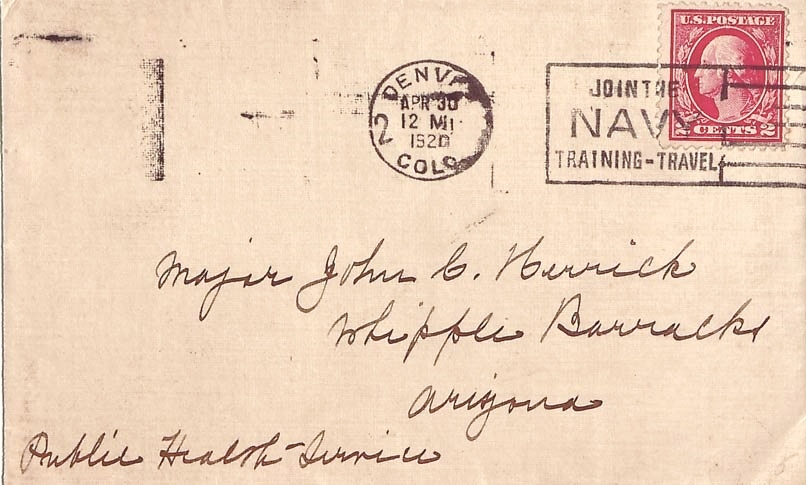 U.S. POSTAGE
2 CENTS 2
DENVER
APR 30
12 M
1920
COLO.
2
JOIN THE
NAVY
TRAINING-TRAVEL
Major John C. Herrick
Whipple Barracks
Arizona
Public Health Service